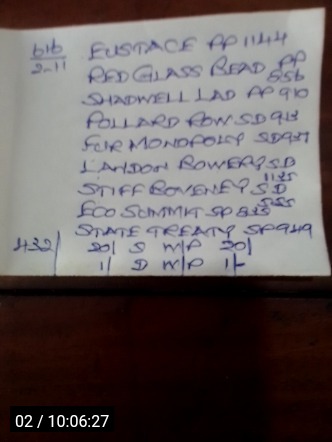 616
2-11
EUSTACE PP 1144
RED GLASS BEAD PP
556
SHADWELL LAD PP 910
POLLARD ROW SD 913
FUR MONOPOLY SD 937
LANDON BOWERY SD
1125
STIFF BOVENEY SD
ECO SUMMIT SP 835
STATE TREATY SP 949
432/ 20/ S W/P 20/
1/ D W/P 1/-
02 / 10:06:27